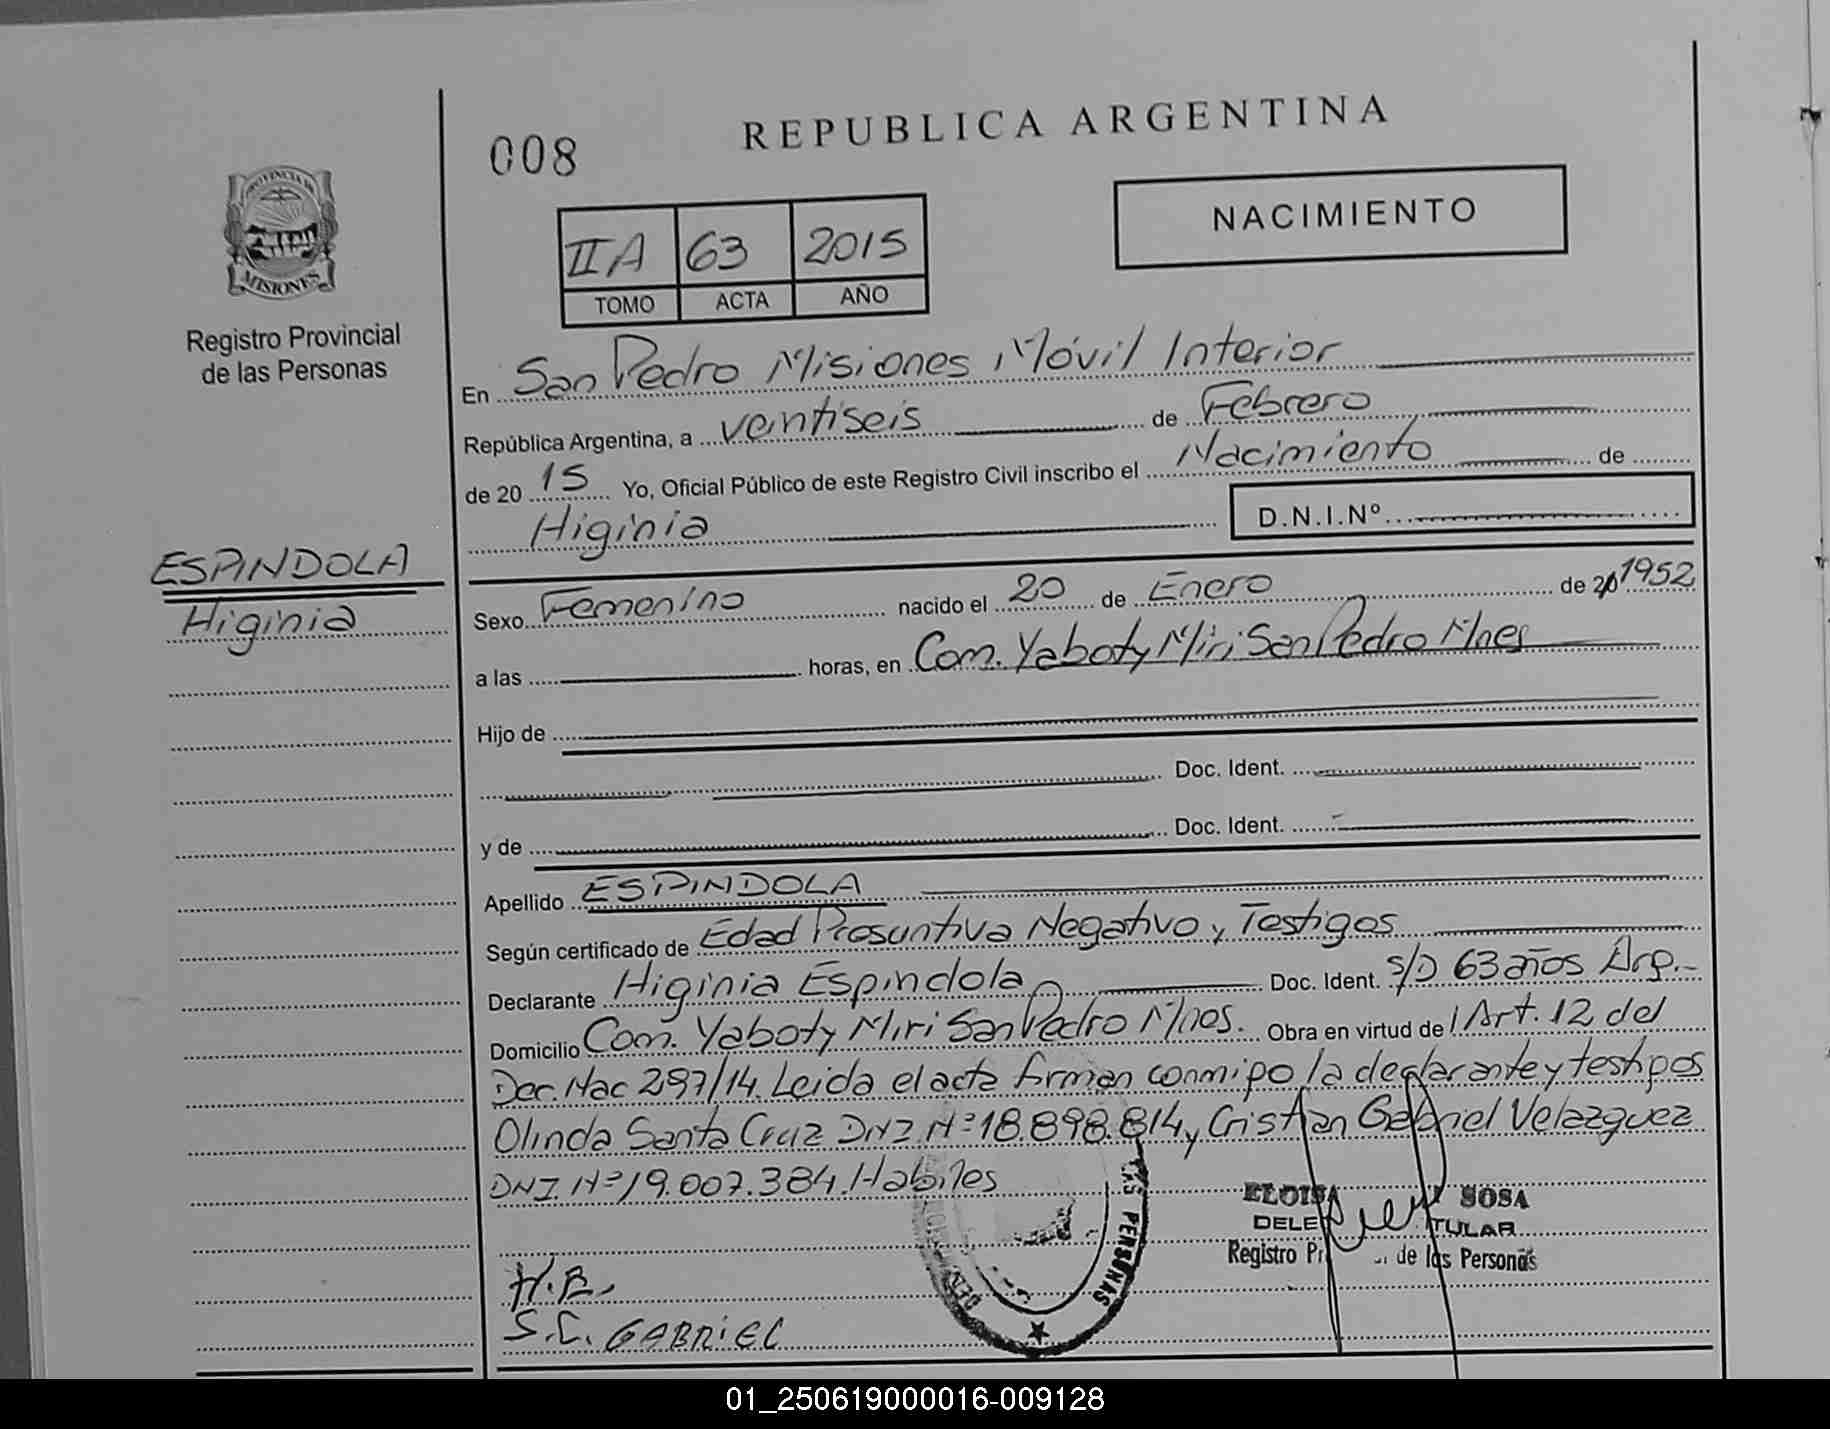 REPUBLICA ARGENTINA
008
NACIMIENTO
II A 63 2015
TOMO ACTA AÑO
PROVINCIA DE
MISIONES
Registro Provincial
de las Personas
En San Pedro Misiones Móvil Interior
República Argentina, a ventiseis de Febrero
de 20 15 Yo, Oficial Público de este Registro Civil inscribo el Nacimiento de
Higinia D.N.I.Nº
ESPINDOLA
Higinia
Sexo Femenino nacido el 20 de Enero de 20 1952
a las horas, en Com. Yaboty Miri San Pedro Mnes
Hijo de
Doc. Ident.
y de Doc. Ident.
Apellido ESPINDOLA
Según certificado de Edad Presuntiva Negativo y Testigos
Declarante Higinia Espindola Doc. Ident. S/D 63 años Arg.-
Domicilio Com. Yaboty Miri San Pedro Mnes. Obra en virtud del Art. 12 del
Dec. Nac 297/14. Leida el acta firman conmigo la declarante y testigos
Olinda Santa Cruz DNI Nº 18.898.814 y Cristian Gabriel Velazquez
DNI. Nº 19.007.384. Habiles
ELOISA SOSA
DELE TULAR
Registro Pr de las Personas
LAS PERSONAS
H.E.
S.C. GABRIEL
01_250619000016-009128